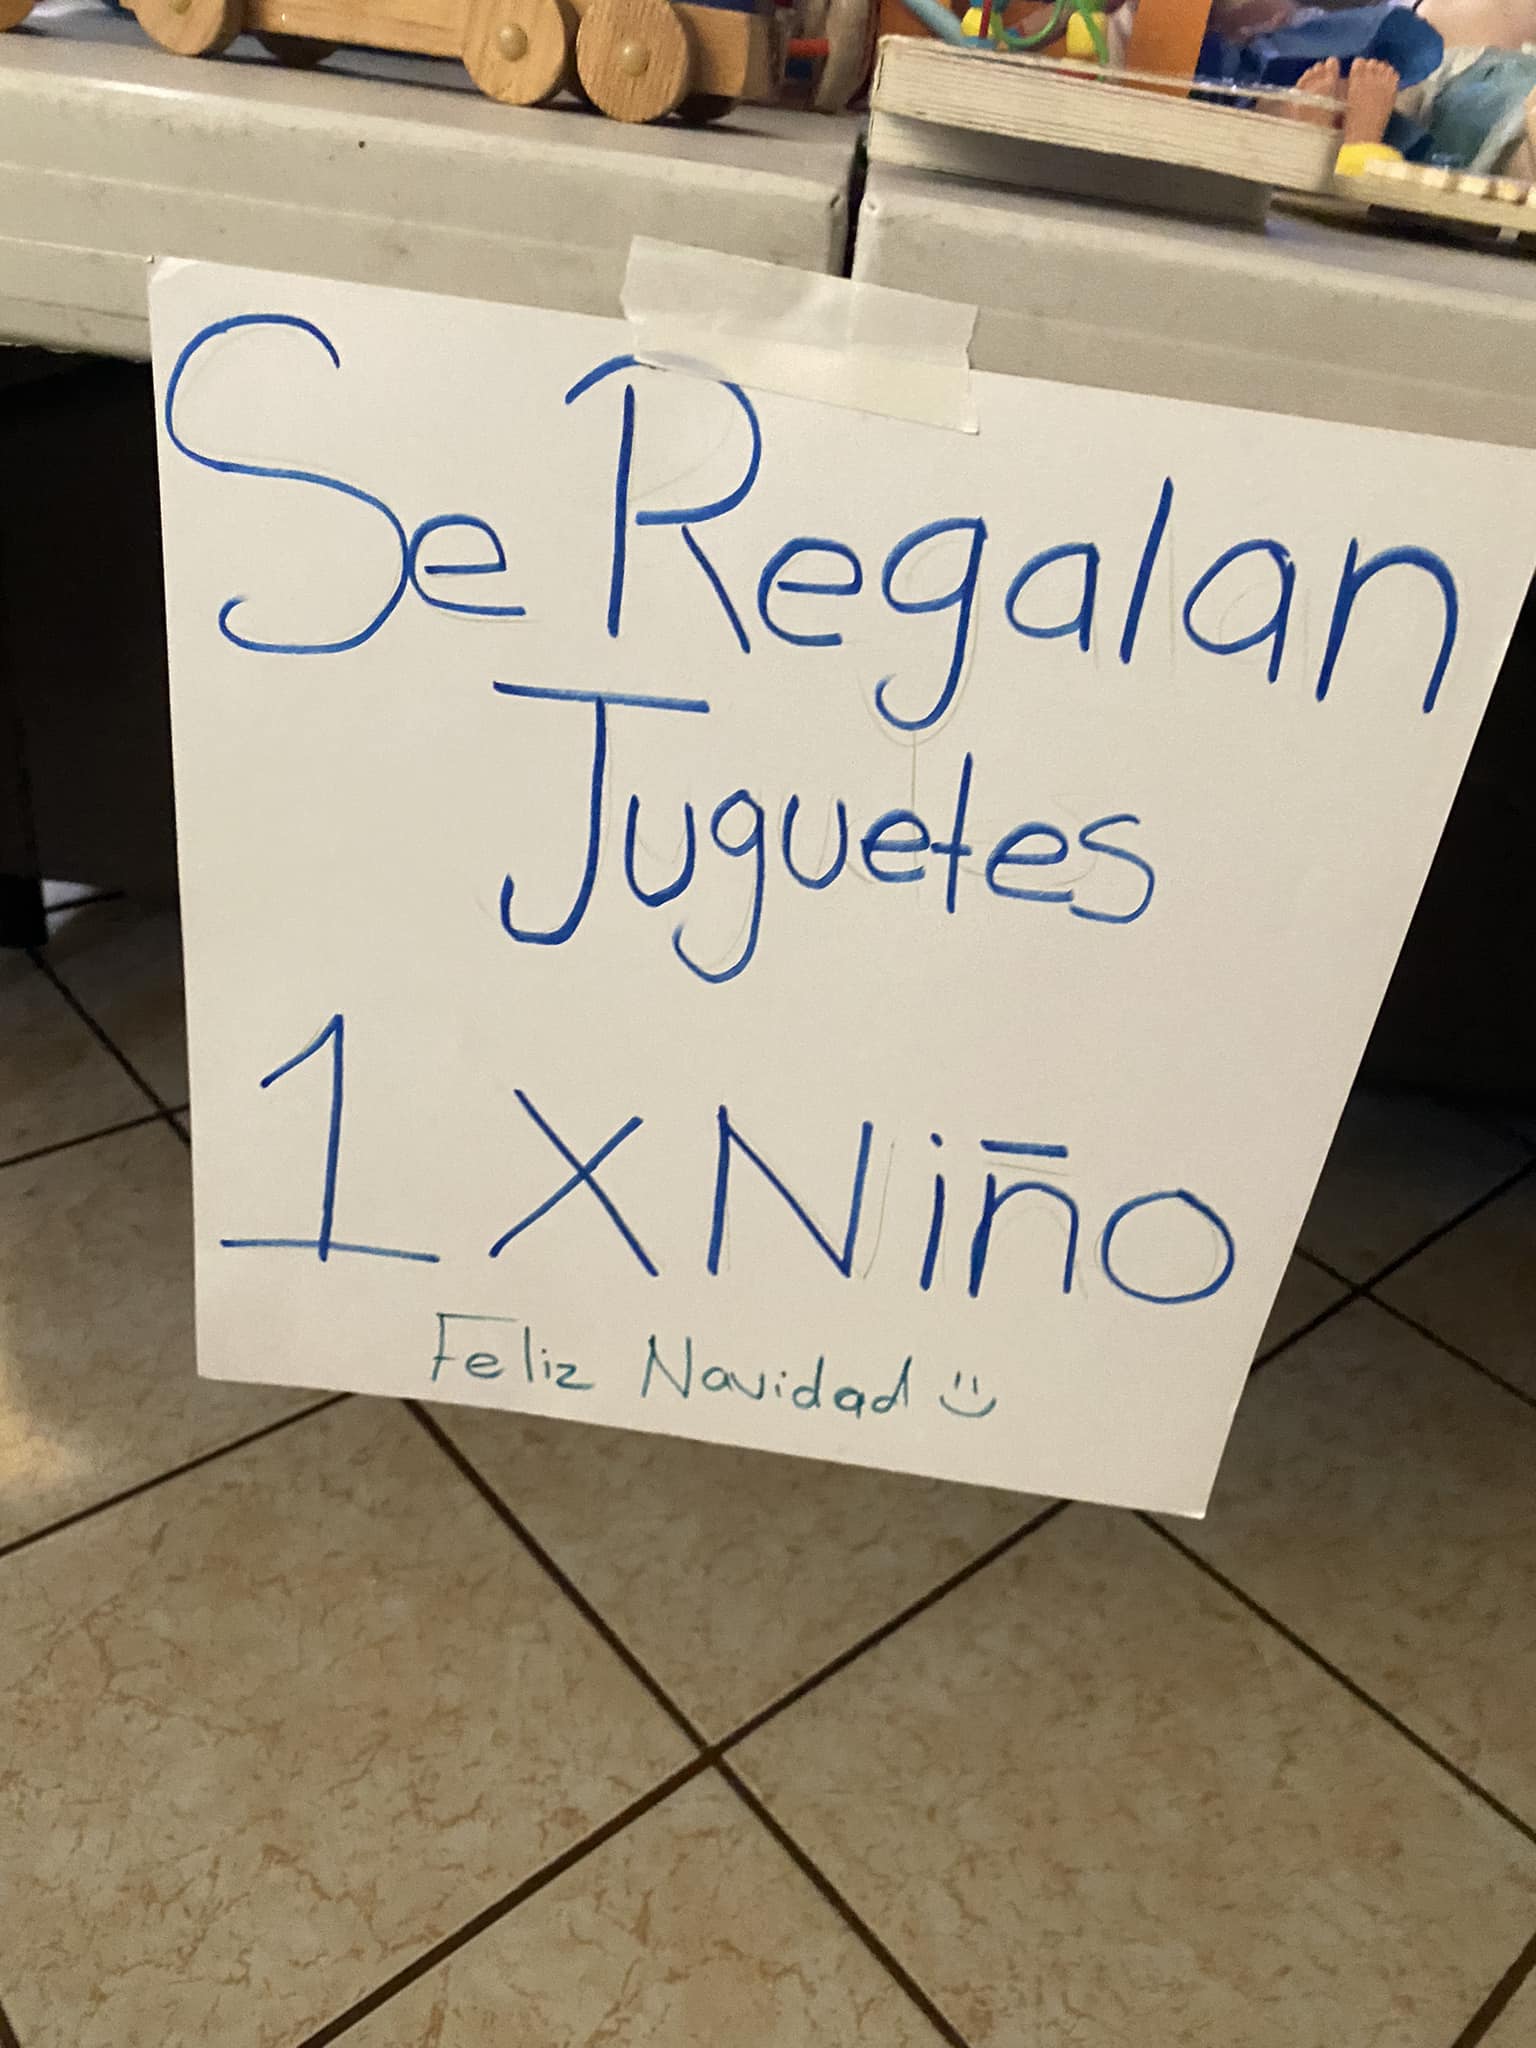 Se Regalan
Juguetes
1 X Niño
Feliz Navidad